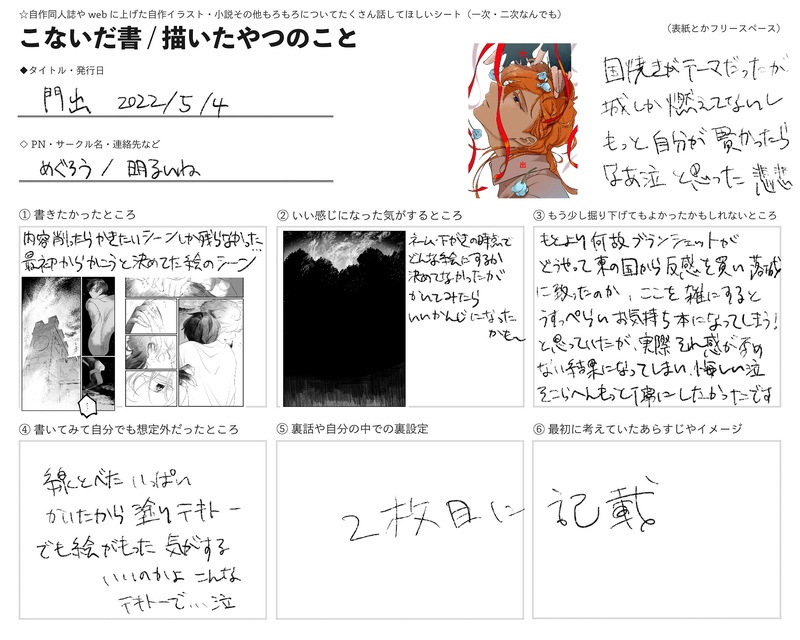 ☆自作同人誌や web に上げた自作イラスト・小説その他もろもろについてたくさん話してほしいシート（一次・二次なんでも）
こないだ書 / 描いたやつのこと
（表紙とかフリースペース）
◆タイトル・発行日
門出 2022/5/4
◇ PN・サークル名・連絡先など
めぐろう / 明るいね
国焼きがテーマだったが
城しか燃えてないし
もっと自分が賢かったら
なあ泣 と思った 悲悲
出
① 書きたかったところ
内容削ったらかきたいシーンしか残らなかった…
最初からかこうと決めてた絵のシーン
② いい感じになった気がするところ
ネーム・下がきの時点で
どんな絵にするか
決めてなかったが
かいてみたら
いいかんじになった
かも〜
③ もう少し掘り下げてもよかったかもしれないところ
もとより何故ブランシェットが
どうやって東の国から反感を買い落城
に致ったのか、ここを雑にすると
うすっぺらいお気持ち本になってしまう!
と思っていたが、実際それ感が否め
ない結果になってしまい、悔しい泣
そこらへんもっと丁寧にしたかったです
④ 書いてみて自分でも想定外だったところ
線とベタいっぱい
かいたから 塗りテキトー
でも絵がもった 気がする
いいのかよ こんな
テキトーで…泣
⑤ 裏話や自分の中での裏設定
⑥ 最初に考えていたあらすじやイメージ
2枚目に 記載